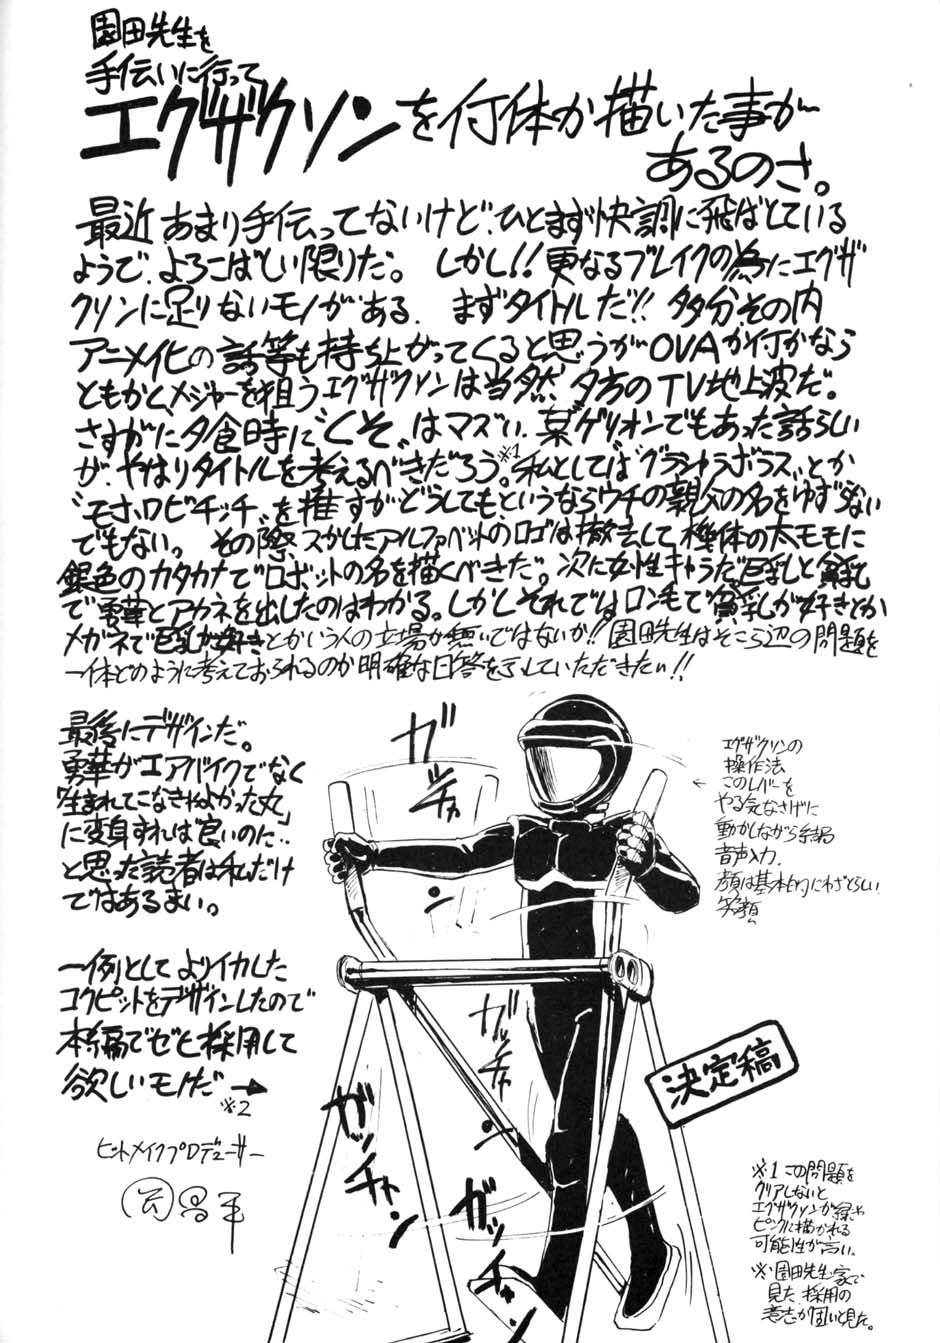 園田先生を
手伝いに行って
エグザクソンを何体か描いた事が
あるのさ。
最近あまり手伝ってないけど、ひとまず快調に飛ばしている
ようで、よろこばしい限りだ。しかし!!更なるブレイクの為にエグザ
クソンに足りないモノがある。まずタイトルだ!!多分その内
アニメイヒの話等も持ち上がってくると思うがOVAか何かなら
ともかく、メジャーを狙うエグザクソンは当然、夕方のTV地上波だ。
さすがに夕食時に〝くそ〟はマズい。某ゲリオンでもあった話らしい
が、やはりタイトルを考えるべきだろう。※1私としては〝グランゥラボラス〟とか
〝モホロビチッチ〟を推すがどうしてもというならウチの親父の名をゆずらない
でもない。その際スかしたアルファベットのロゴは撤去して機体の太モモに
銀色のカタカナでロボットの名を描くべきだ。次に女性キャラだ巨乳と貧乳
で勇華とアカネを出したのはわかる。しかしそれではロン毛で貧乳が好きとか
メガネで巨乳が好きとかいう人の立場が無いではないか!!園田先生はそこら辺の問題を
一体どのように考えておられるのか明確な回答を示していただきたい!!
最後にデザインだ。
勇華がエアバイクでなく
「生まれてこなきゃよかった丸」
に変身すれば良いのに…
と思った読者は私だけ
ではあるまい。
一例としてよりイカした
コクピットをデザインしたので
本編でぜヒ採用して
欲しいモノだ→
※2
ヒットメイクプロデューサー
ガ
チャ
ン
ガッ
チャ
ン
ガッ
チャン
ガッ
チャン
エグザクソンの
操作法
←このレバーを
やる気なさげに
動かしながら
音声入力、
顔は基本的にわざとらしい
笑顔。
決定稿
※1この問題を
クリアしないと
エグザクソンが緑や
ピンクに描かれる
可能性が高い。
※園田先生家で
見た、採用の
意志が固いと見た。